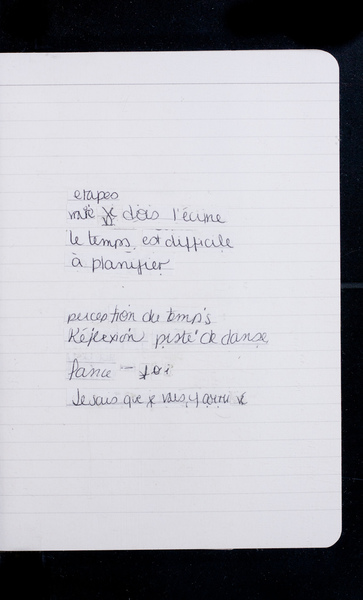 etapes
je dois l'écume
le temps est difficile
à planifier
perception du temps
Réflexion piste de danse
fance -
Je sais que je vais y